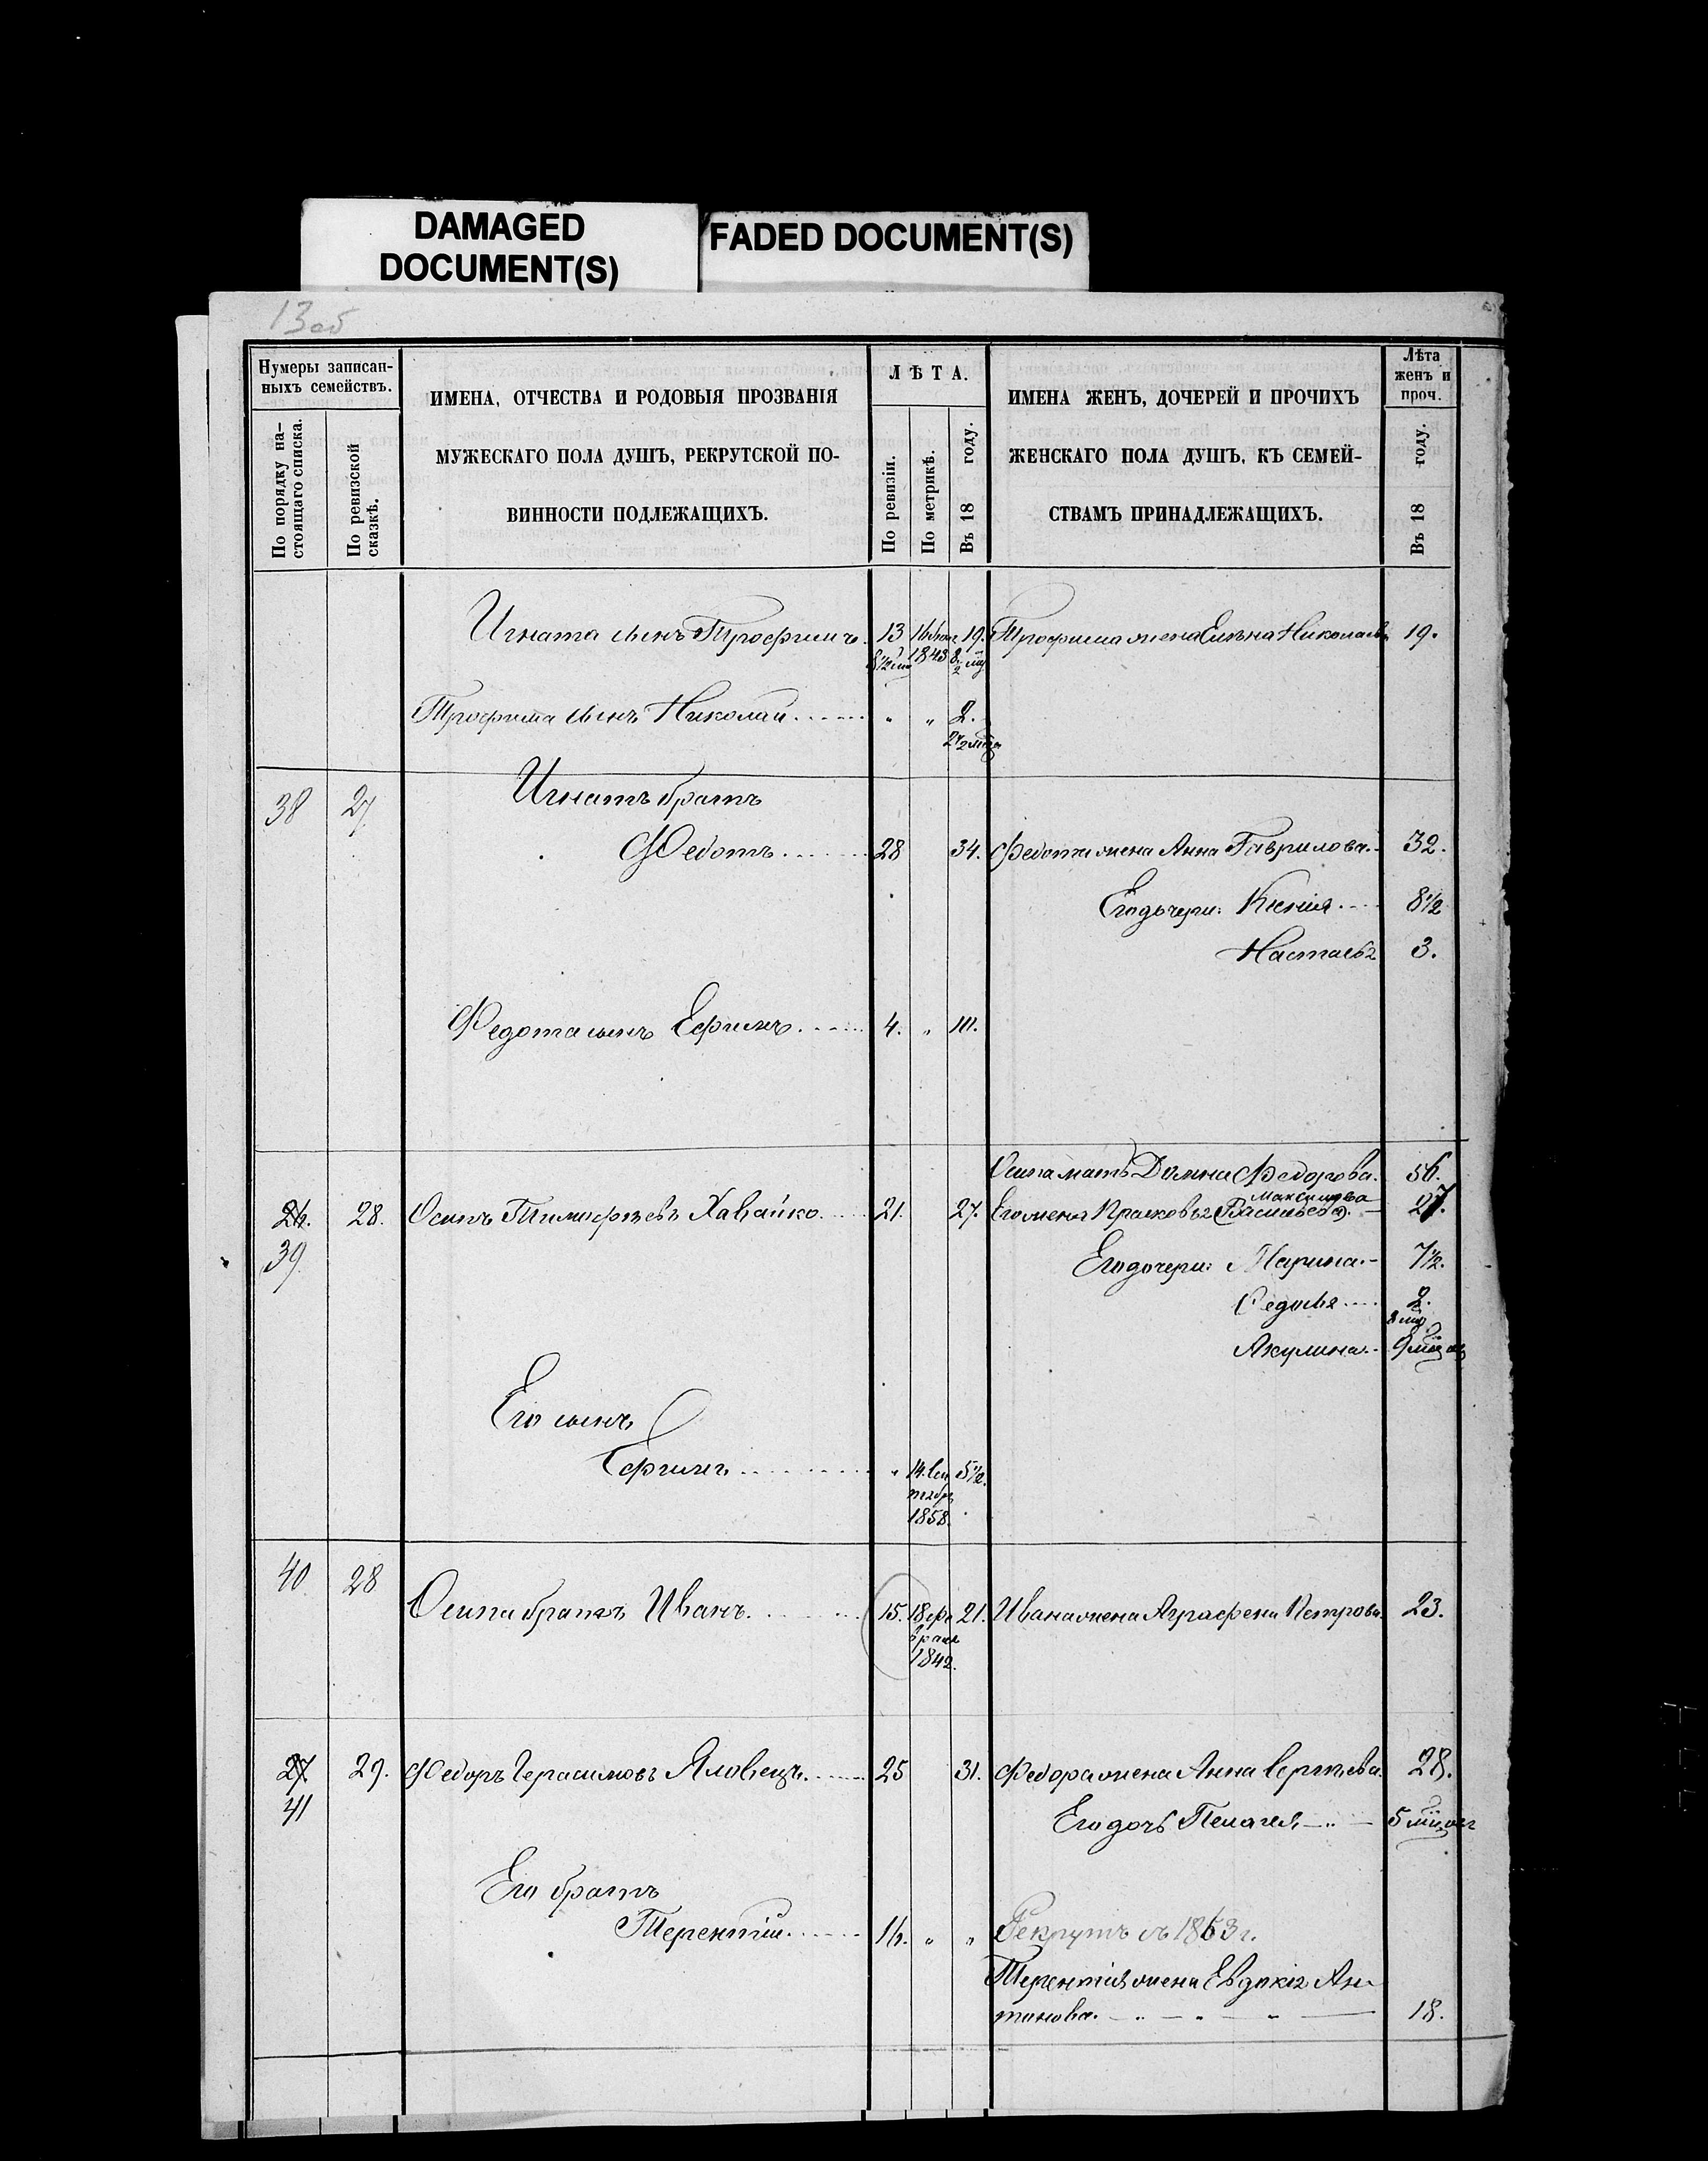 DAMAGED
DOCUMENT(S)
FADED DOCUMENT(S)
13 об
Нумеры записан-
ныхъ семействъ.
По порядку на-
стоящаго списка.
По ревизской
сказкѣ.
ИМЕНА, ОТЧЕСТВА И РОДОВЫЯ ПРОЗВАНІЯ
МУЖЕСКАГО ПОЛА ДУШЪ, РЕКРУТСКОЙ ПО-
ВИННОСТИ ПОДЛЕЖАЩИХЪ.
ЛѢТА.
По ревизіи.
По метрикѣ.
Въ 18 году.
ИМЕНА ЖЕНЪ, ДОЧЕРЕЙ И ПРОЧИХЪ
ЖЕНСКАГО ПОЛА ДУШЪ, КЪ СЕМЕЙ-
СТВАМЪ ПРИНАДЛЕЖАЩИХЪ.
Лѣта
женъ и
проч.
Въ 18 году.
Игната сынъ Трофимъ. 13 19. Трофима жена Елена Николаева 19.
1843
Трофима сынъ Николай " " 2.
38 27. Игнатъ братъ
Федотъ 28 34. Федота жена Анна Гаврилова. 32.
Его дочери: Ксенія 8 1/2
Настасья 3.
Федота сынъ Ефимъ 4. " 10.
Осипа мать Домна Федорова. 56.
Максимова
26. 28. Осипъ Тимофѣевъ Хавайко 21. 27. Его жена Прасковья (Васильева). 27.
39 Его дочери: Марина. 7 1/2.
Федосья 2.
Акулина. 9 мѣ
Его сынъ
Ефимъ " 14. Сен 5 1/2.
тября
1858.
40 28 Осипа братъ Иванъ. 15. 18 фе 21. Ивана жена Аграфена Петрова. 23.
враля
1842.
27. 29. Федоръ Герасимовъ Яловецъ. 25 31. Федора жена Анна Сергѣева. 28.
41 Его дочь Пелагея 5 мѣ
Его братъ
Терентій 16. " " Рекрутъ съ 1863 г.
Терентія жена Евдокія Ан-
тонова. 18.